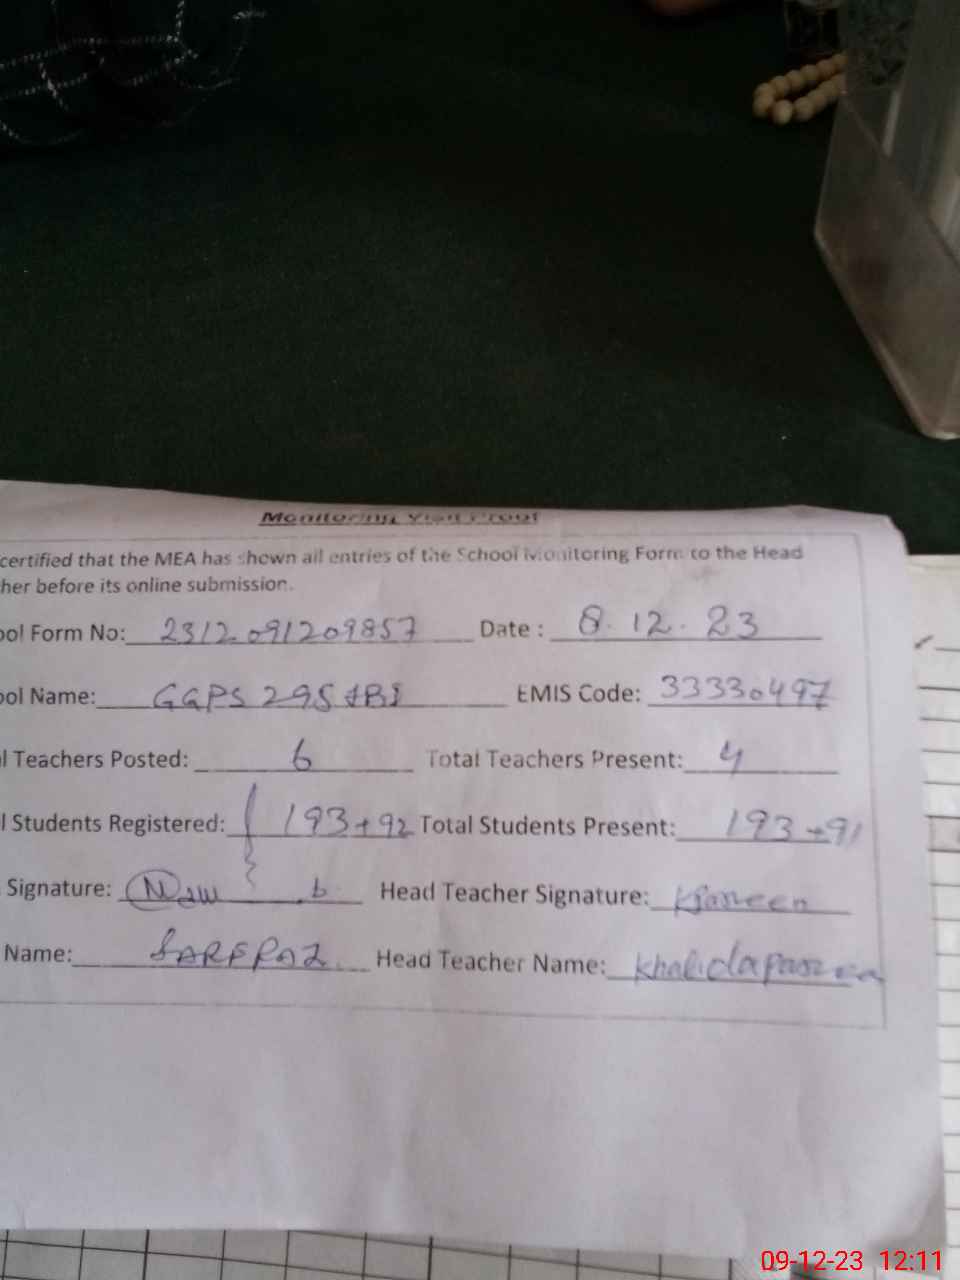 Monitoring Visit Proof
certified that the MEA has shown all entries of the School Monitoring Form to the Head
her before its online submission.
ool Form No: 2312091209857 Date : 8.12.23
ool Name: GGPS 295 EMIS Code: 33330497
l Teachers Posted: 6 Total Teachers Present: 4
l Students Registered: 193+92 Total Students Present: 193+91
Signature: Head Teacher Signature:
Name: SARFRAZ Head Teacher Name: Khalida Parveen
09-12-23 12:11